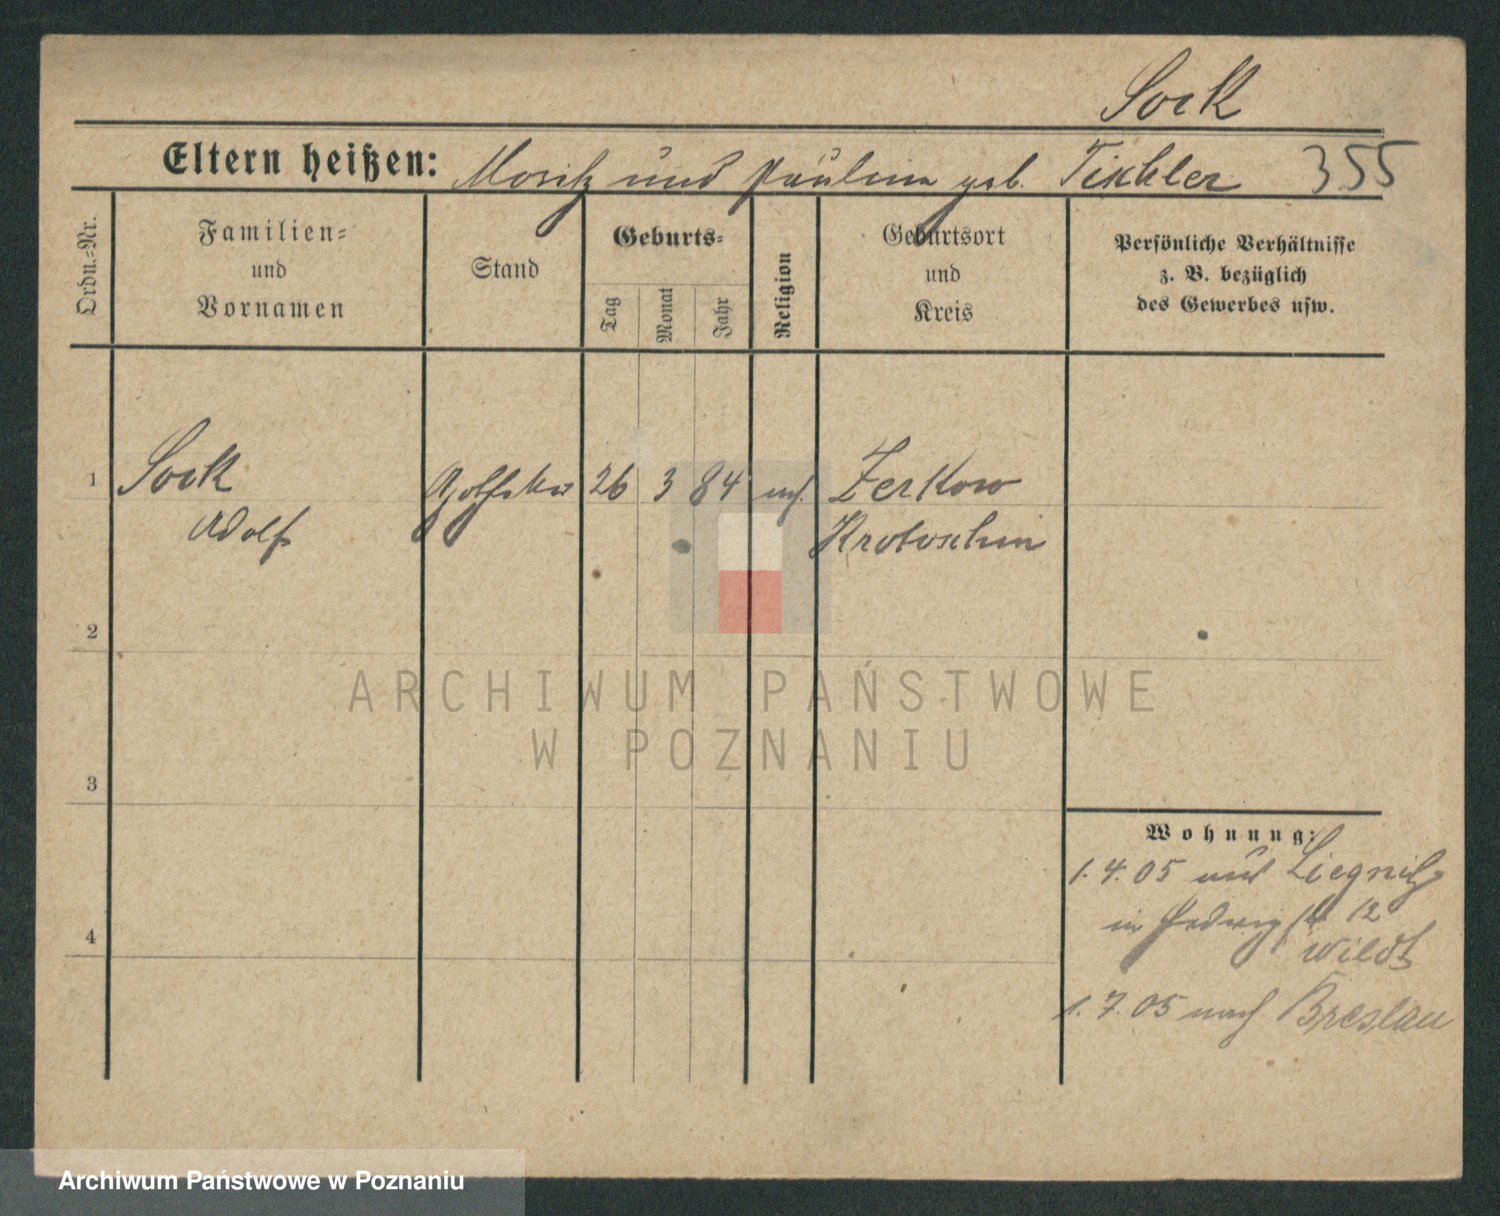 Sock
Eltern heißen: Moritz und Pauline geb. Tichler 355
Ordn.-Nr.
Familien-
und
Vornamen
Stand
Geburts-
Tag
Monat
Jahr
Religion
Geburtsort
und
Kreis
Persönliche Verhältnisse
z. B. bezüglich
des Gewerbes usw.
1 Sock 26 3 84 Zerkow
Adolf Krotoschin
2
ARCHIWUM PAŃSTWOWE
W POZNANIU
3
Wohnung:
1. 4. 05 aus Liegnitz
in Hedwigstr 12
4
1. 7. 05 nach Breslau
Archiwum Państwowe w Poznaniu